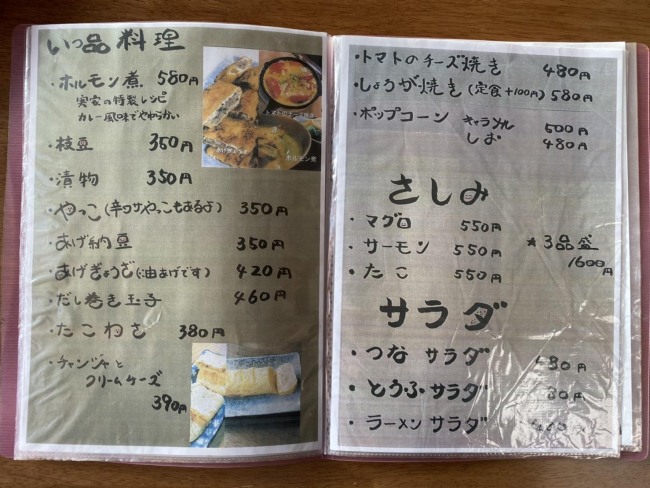 いっ品料理
・ホルモン煮 580円
実家の特製レシピ
カレー風味でやわらかい
・枝豆 350円
・漬物 350円
・やっこ(辛ウサやっこもあるよ) 350円
・あげ納豆 350円
・あげぎょうざ(油あげです) 420円
・だし巻き玉子 460円
・たこわさ 380円
・チャンジャと
クリームチーズ
390円
トマトのチーズ焼き
ホルモン煮
・トマトのチーズ焼き 480円
・しょうが焼き(定食+100円) 580円
・ポップコーン キャラメル 500円
しお 480円
さしみ
・マグロ 550円
・サーモン 550円
・たこ 550円
★3品盛
1600円
サラダ
・つなサラダ
・とうふサラダ
・ラーメンサラダ